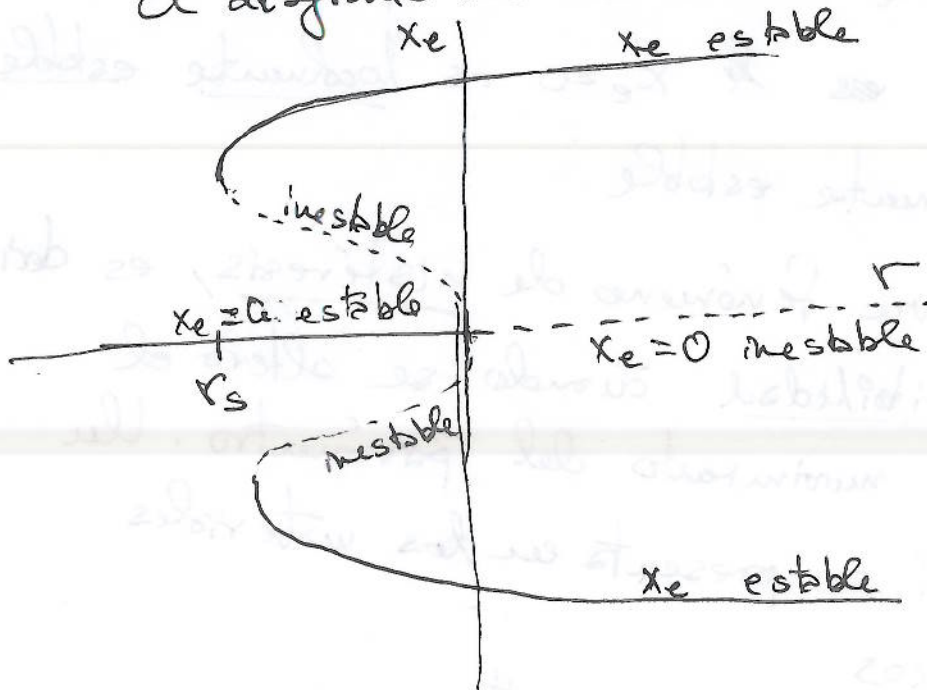 x_e
x_e estable
inestable
r
x_e = 0 estable
x_e = 0 inestable
r_s
inestable
x_e estable